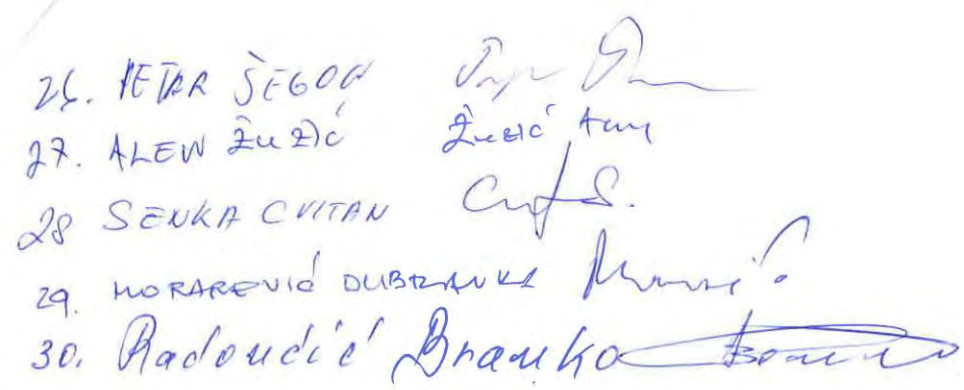 26. PETAR ŠEGOTA
27. ALEN ŽUŽIĆ Žužić Alen
28 SENKA CVITAN
29. MORAREVIĆ DUBRAVKA
30. Radončić Branko